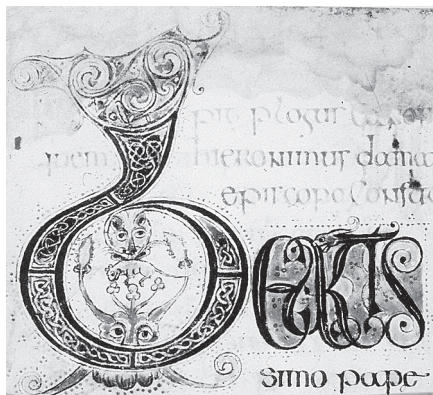 pit plogus
hieronimus dama
episcopo confe
BEATIS
simo pape